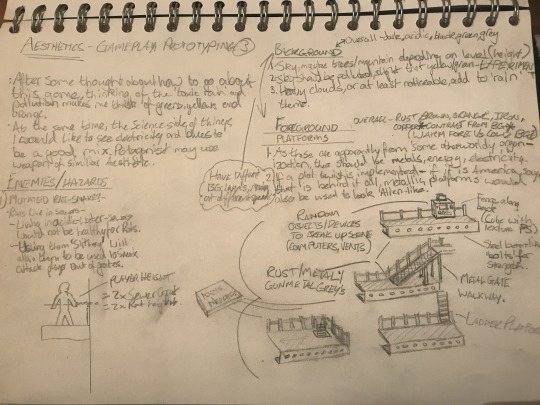 AESTHETICS - GAMEPLAY PROTOTYPING 3
: After some thought about how to go about
this game, thinking of the toxic rain and
pollution makes me think of greens, yellows and
orange.
: At the same time, the science side of things
I would like to see electricity and blues to
be a good mix. Protagonist may use
weapon of similar aesthetic.
ENEMIES/HAZARDS
MUTATED RAT-SNAKE -
- Rats live in sewers -
- Living in acidic water
would not be healthy for Rats.
- Using them will
allow them to be used to sneak
attack plays out of grates.
PLAYER HEIGHT
= 2x Sewer Grate
= 2x Rat height
BACKGROUND
Overall - dark, acidic, black, green, grey
1. Sky, maybe trees/mountain depending on level (height)
2. Sky should be polluted, slight yellow/green - EXPERIMENT
3. Heavy clouds, or at least noticeable, add to 'rain'
theme.
FOREGROUND
PLATFORMS
OVERALL - RUST BROWN, ORANGE, IRON,
COPPER CONTRAST FROM BG
(WARM FORE VS COLD BG)
1. As these are apparently from some otherworldly organ-
ization, there should be metals, energy, electricity.
2. If a plot twist is implemented - if it is America, say,
that is behind it all, metallic platforms would
also be used to look 'Alien-like'.
Have different
BG layers, moving
at different speeds
RANDOM
OBJECTS/DEVICES
TO BREAK UP SCENE
(COMPUTERS, VENTS)
Fence along
back
(Cube with
texture PS)
Steel beam-like
for
strength.
RUST/METAL/
GUNMETAL GREYS
METAL GATE
WALKWAY.
LADDER PLATFORM